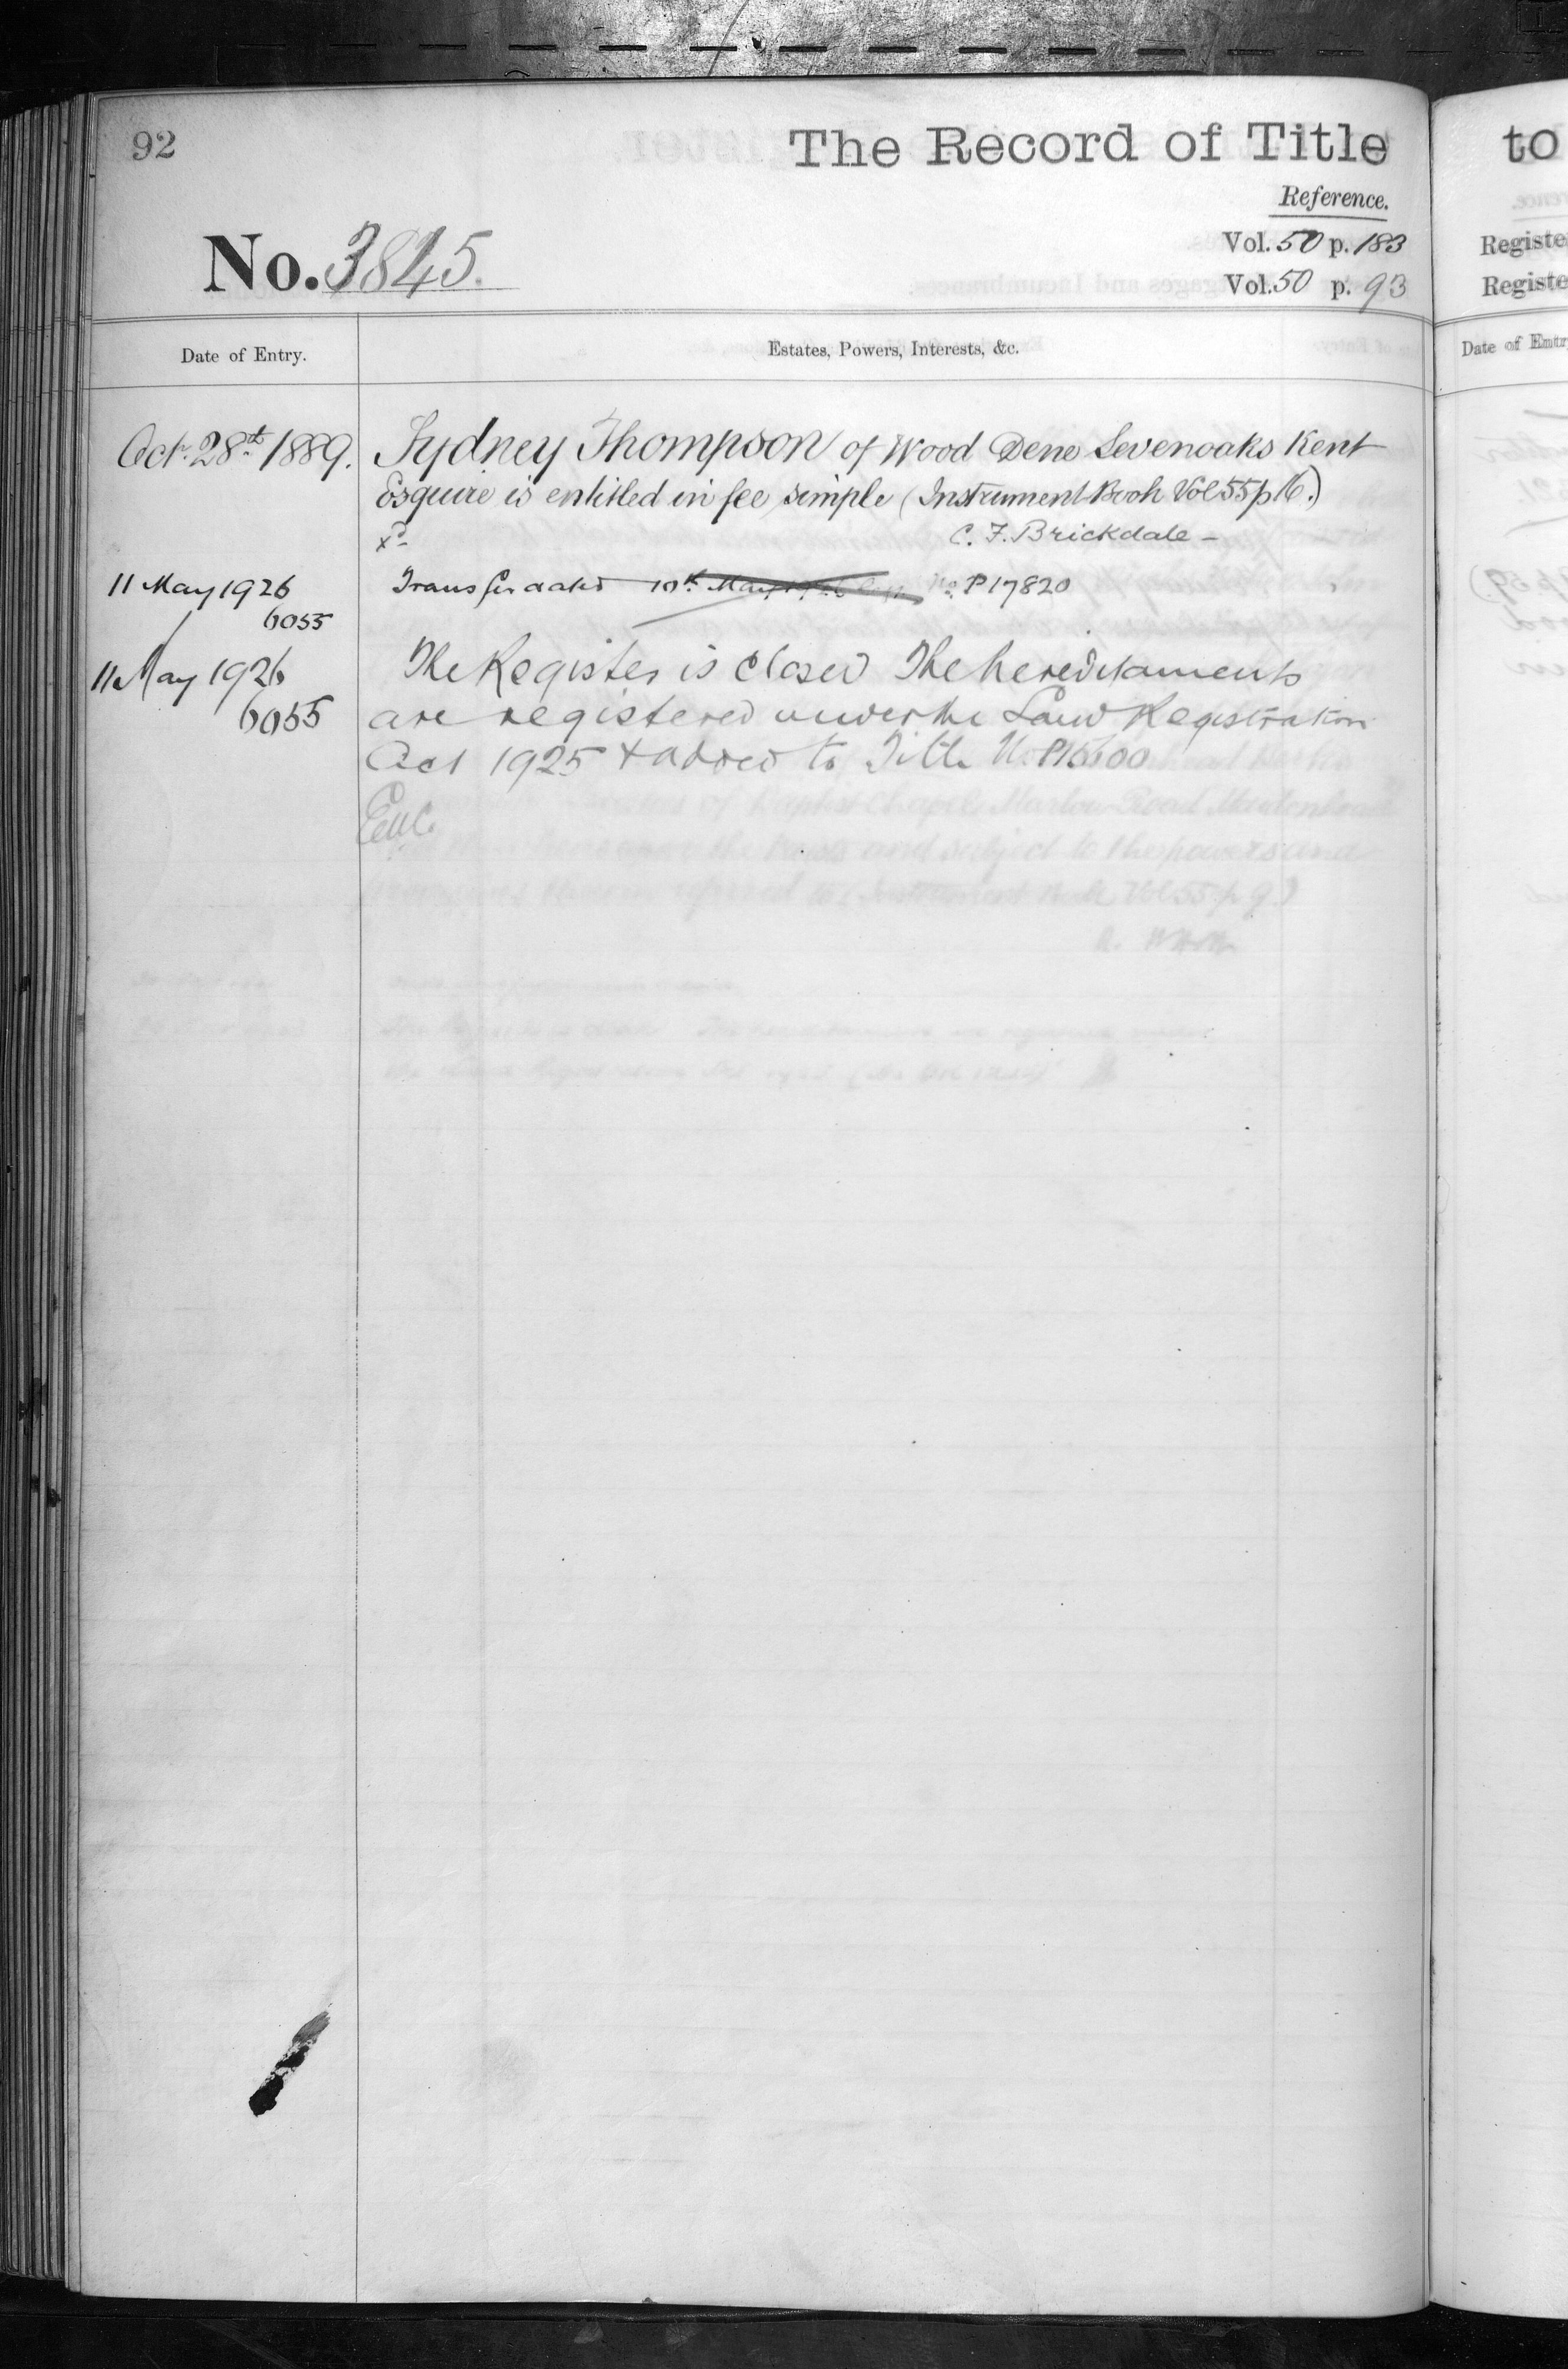 92
The Record of Title
Reference.
No. 3845.
Vol. 50 p. 183
Vol. 50 p. 93
Date of Entry.
Estates, Powers, Interests, &c.
Oct. 28th 1889.
Sydney Thompson of Wood Dene Sevenoaks Kent
Esquire is entitled in fee simple (Instrument Book Vol 55 p 16.)
C. F. Brickdale -
11 May 1926
6055
Transfer dated 10th May No. P17820
11 May 1926
6055
The Register is closed The hereditaments
are registered under the Land Registration
Act 1925 & added to Title No.
to
Registe
Registe
Date of Entr